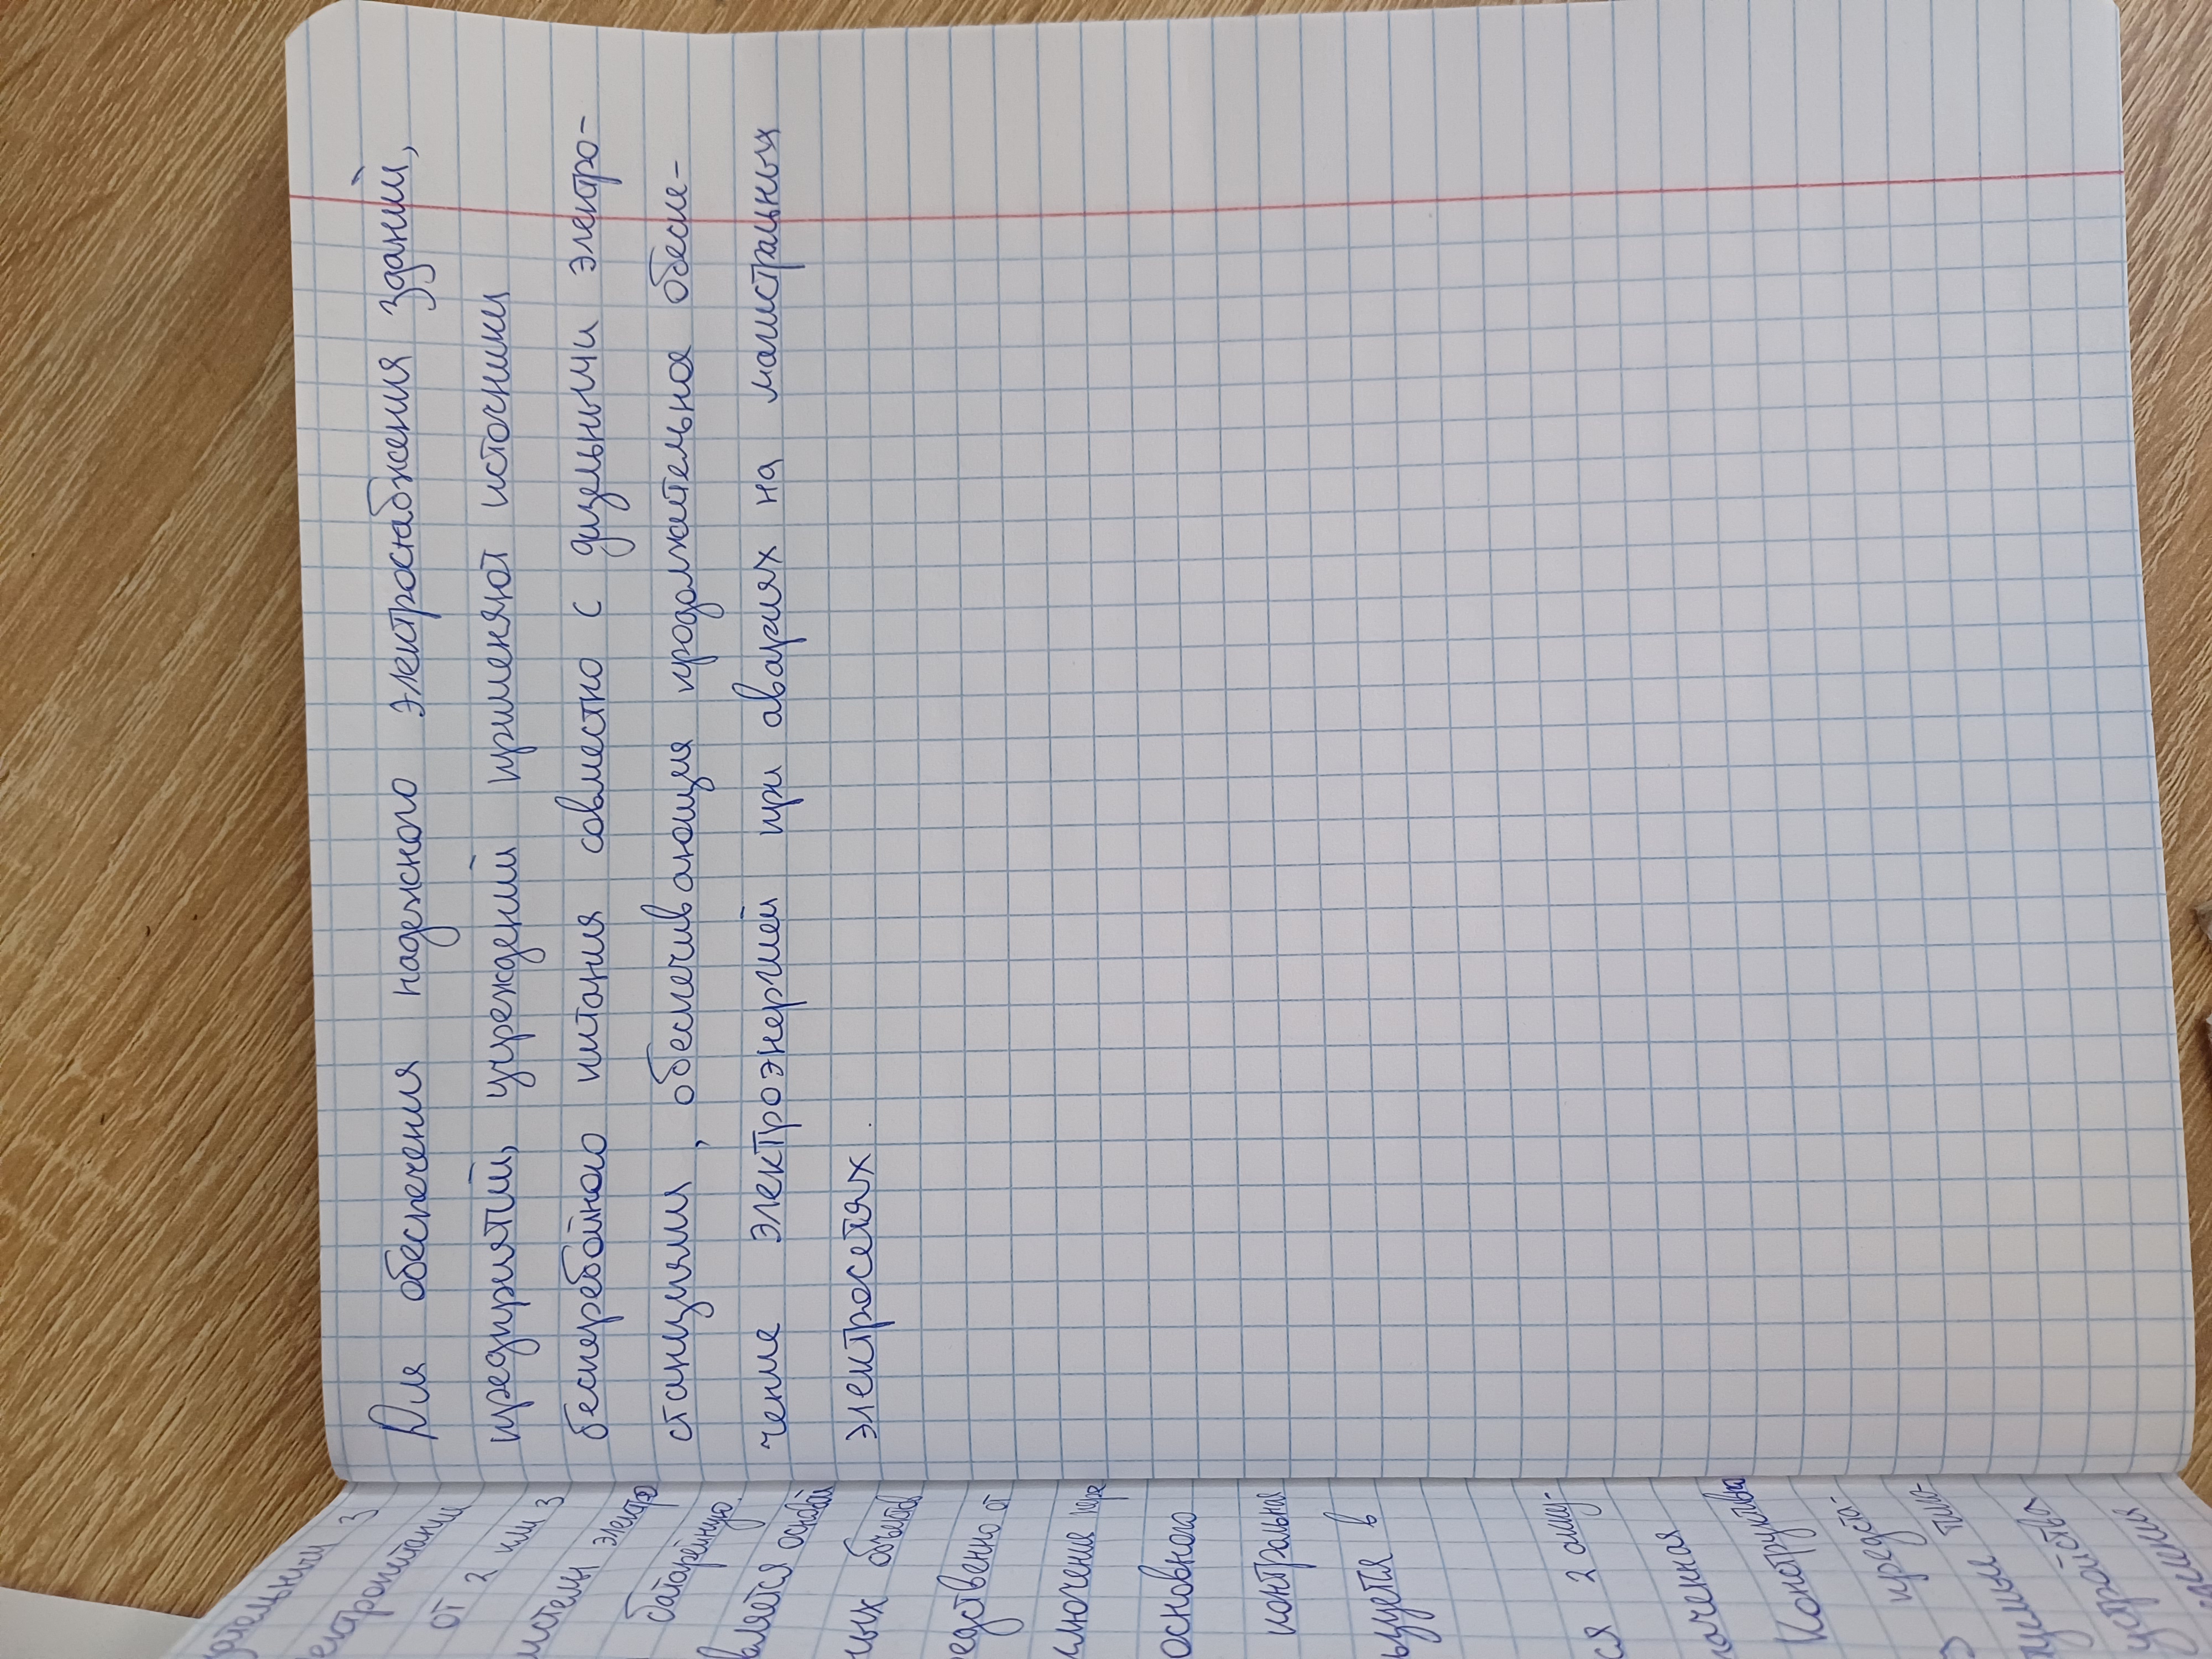 Для обеспечения надежного электроснабжения зданий,
предприятий, учреждений применяют источники
бесперебойного питания совместно с дизельными электро-
станциями, обеспечивающие продолжительное обеспе-
чение электроэнергией при авариях на магистральных
электросетях.
от 2 или 3
батарейную
вляется основой
ных объектов
едственно от
ключение
основного
контрольная
ьзуется в
ся 2
Конструктивно
предста-